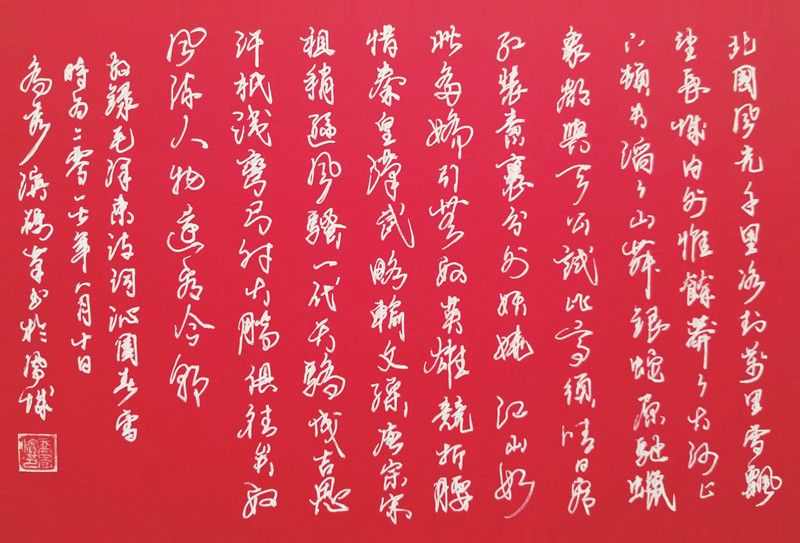 北國風光千里冰封萬里雪飄
望長城内外惟餘莽〻大河上
下頓失滔〻山舞銀蛇原馳蠟
象欲與天公試比高須晴日看
紅裝素裹分外妖嬈 江山如
此多嬌引無數英雄競折腰
惜秦皇漢武略輸文採唐宗宋
祖稍遜風騷一代天驕成吉思
汗祇識彎弓射大鵰俱往矣數
風流人物還看今朝
錄毛澤東詩詞沁園春雪
時為二零一七年八月十日
書於鳳城